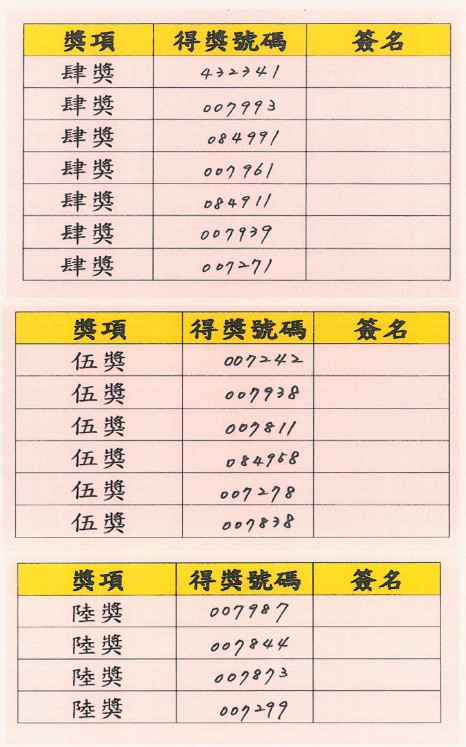 獎項 得獎號碼 簽名
肆獎 432341
肆獎 007993
肆獎 084991
肆獎 007961
肆獎 084911
肆獎 007939
肆獎 007271
獎項 得獎號碼 簽名
伍獎 007242
伍獎 007938
伍獎 007811
伍獎 084968
伍獎 007278
伍獎 007838
獎項 得獎號碼 簽名
陸獎 007987
陸獎 007844
陸獎 007873
陸獎 007299